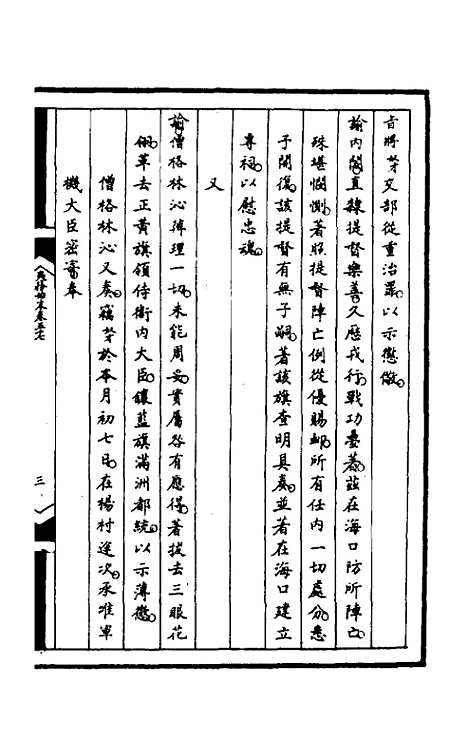 旨將芽交部從重治罪以示懲儆
諭內閣直隸提督樂善久歷戎行戰功疊著茲在海口防所陣亡
殊堪憫惻著照提督陣亡例從優賜卹所有任內一切處分悉
予開復該提督有無子嗣著該旗查明具奏並著在海口建立
專祠以慰忠魂
又
諭僧格林沁辦理一切未能周妥實屬咎有應得著拔去三眼花
翎革去正黃旗領侍衛內大臣鑲藍旗滿洲都統以示薄懲
僧格林沁又奏竊芽於本月初七日在楊村途次承准軍
機大臣密寄奉
籌辦夷務始末卷五七
三